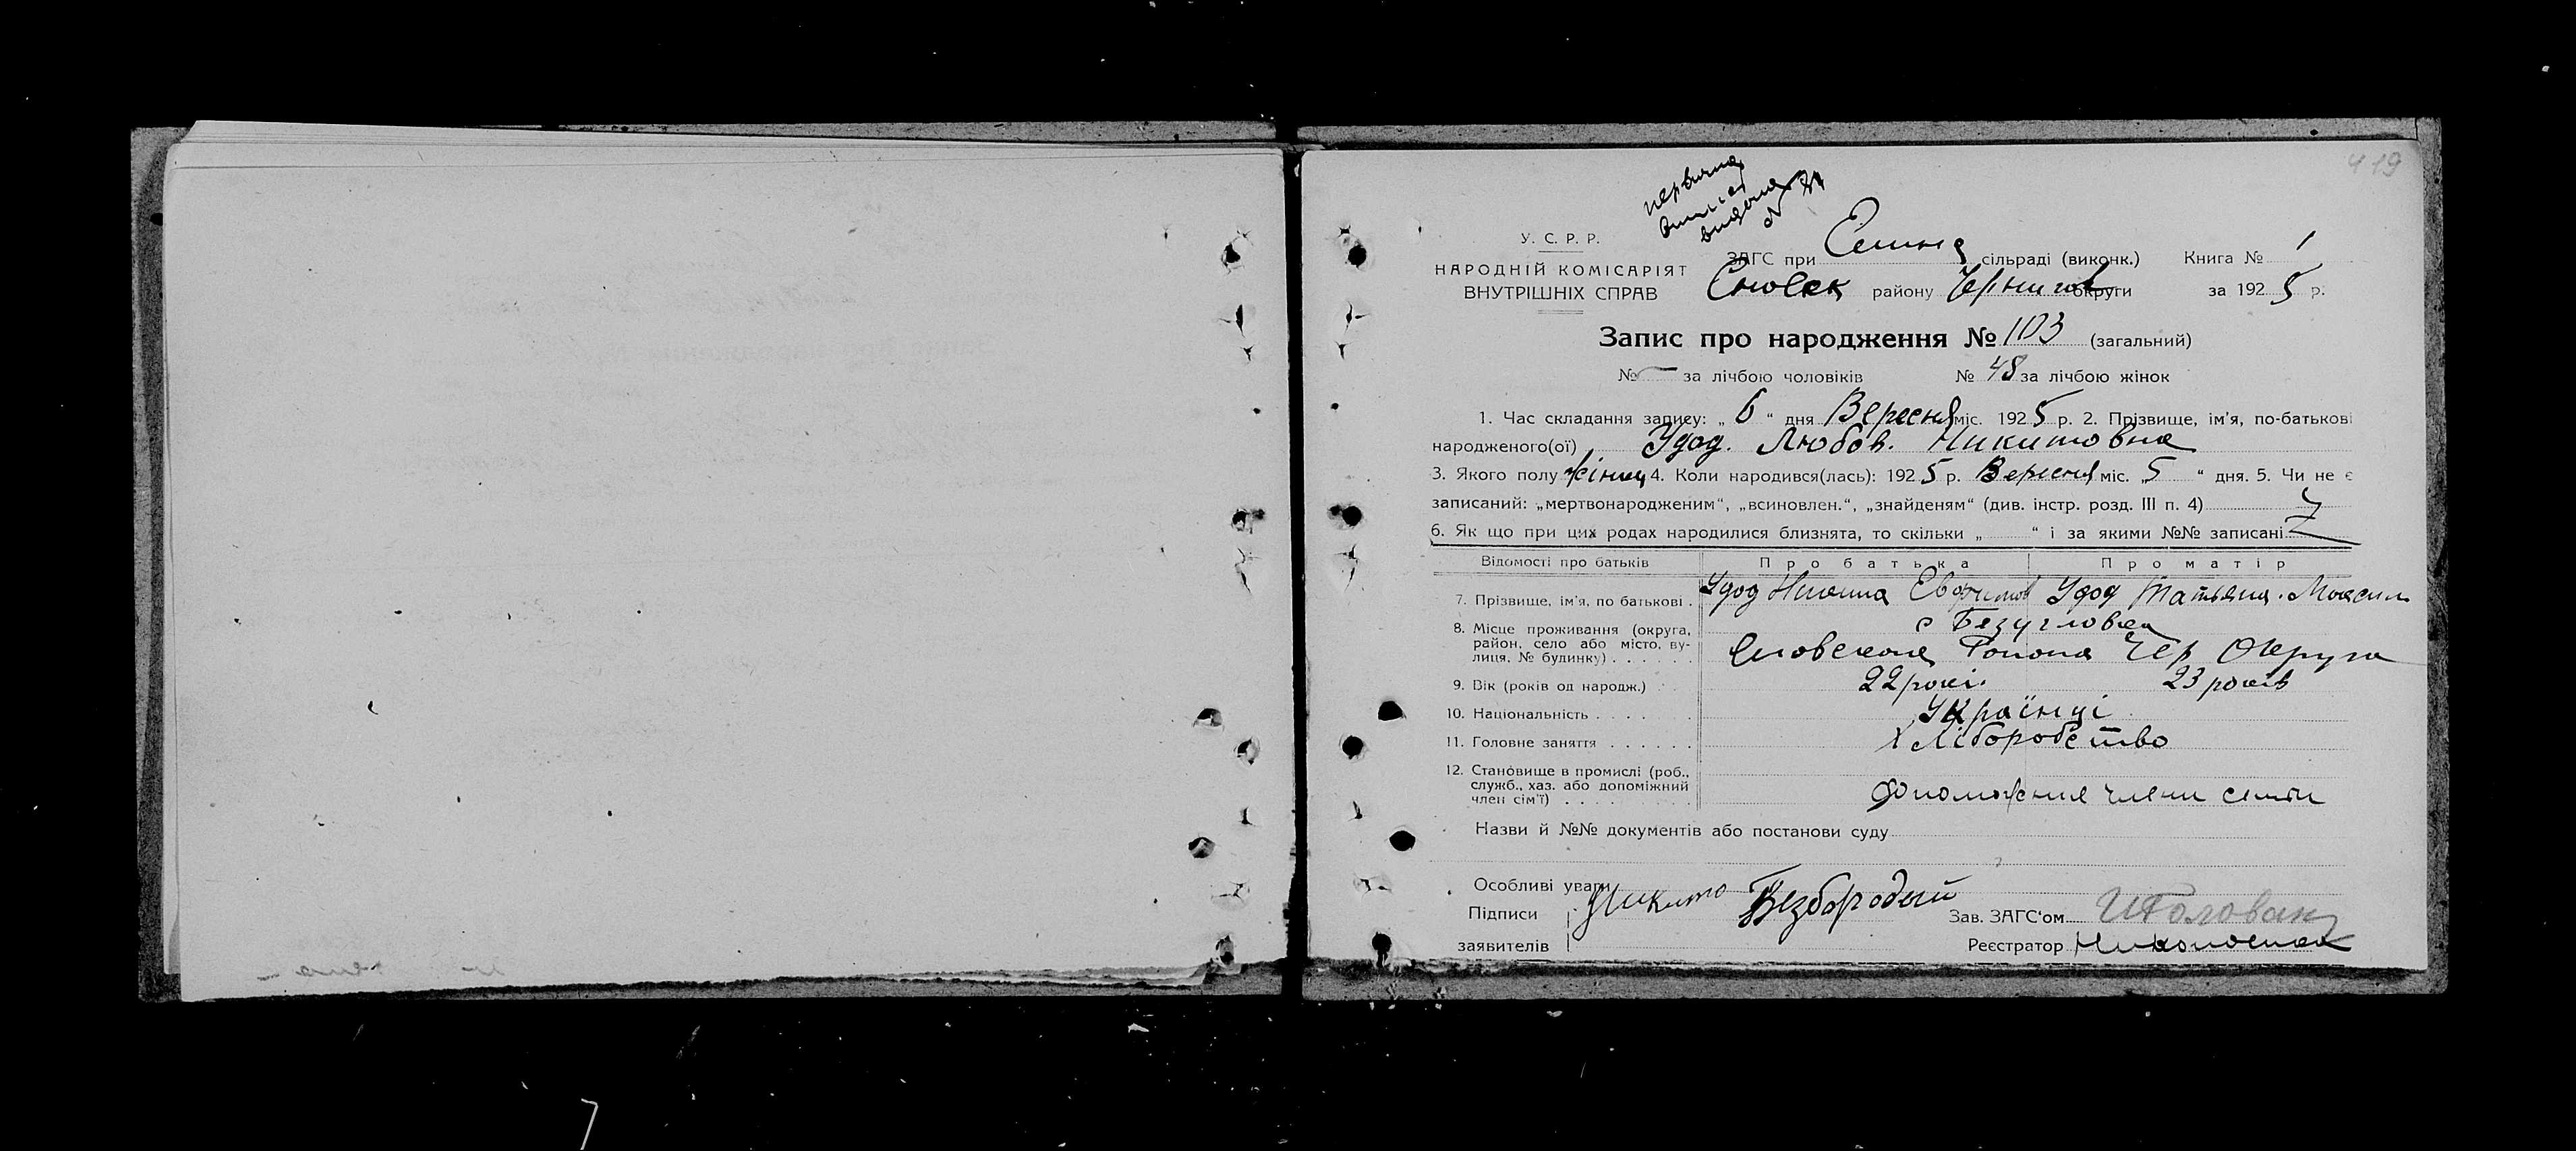 419
первина
видана
У. С. Р. Р.
НАРОДНІЙ КОМІСАРІЯТ
ВНУТРІШНІХ СПРАВ
ЗАГС при сільраді (виконк.) Книга № 1
Сновск району Чернигов округи за 1925 р.
Запис про народження № 103 (загальний)
№ — за лічбою чоловіків № 48 за лічбою жінок
1. Час складання запису: „ 6 “ дня Вересня міс. 1925 р. 2. Прізвище, ім'я, по-батькові
народженого(ої) Удод. Любов. Никитовна
3. Якого полу жіноц 4. Коли народився(лась): 1925 р. Вересня міс. „5 “ дня. 5. Чи не є
записаний: „мертвонародженим“, „всиновлен.“, „знайденям“ (див. інстр. розд. III п. 4)
6. Як що при цих родах народилися близнята, то скільки „ “ і за якими №№ записані
Відомості про батьків Про батька Про матір
7. Прізвище, ім'я, по батькові . Удод Никита Евфимов Удод Татьяна. Максим
8. Місце проживання (округа, район, село або місто, вулиця, № будинку) . . . . . . с Безугловка
Сновского Района Чер Округа
9. Вік (років од народж.) 22 рокі. 23 років
10. Національність . . . . . Українці
11. Головне заняття . . . . . . Хліборобство
12. Становище в промислі (роб., служб., хаз. або допоміжний член сім'ї) . . . . Допоможние члени семти
Назви й №№ документів або постанови суду
Особливі уваги
Підписи Никито Безбородый Зав. ЗАГС'ом ИГоловань
заявителів Реєстратор